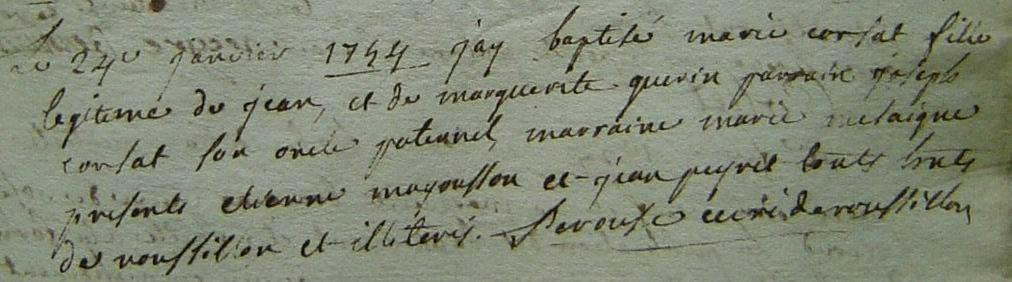 Le 24e janvier 1744 jay baptisé marie corsat fille
legitime de jean, et de marguerite guerin parrain joseph
corsat son oncle paternel, marraine marie
presents etienne mayousson et jean peyret touts
de roussillon et illiterés. curé de roussillon